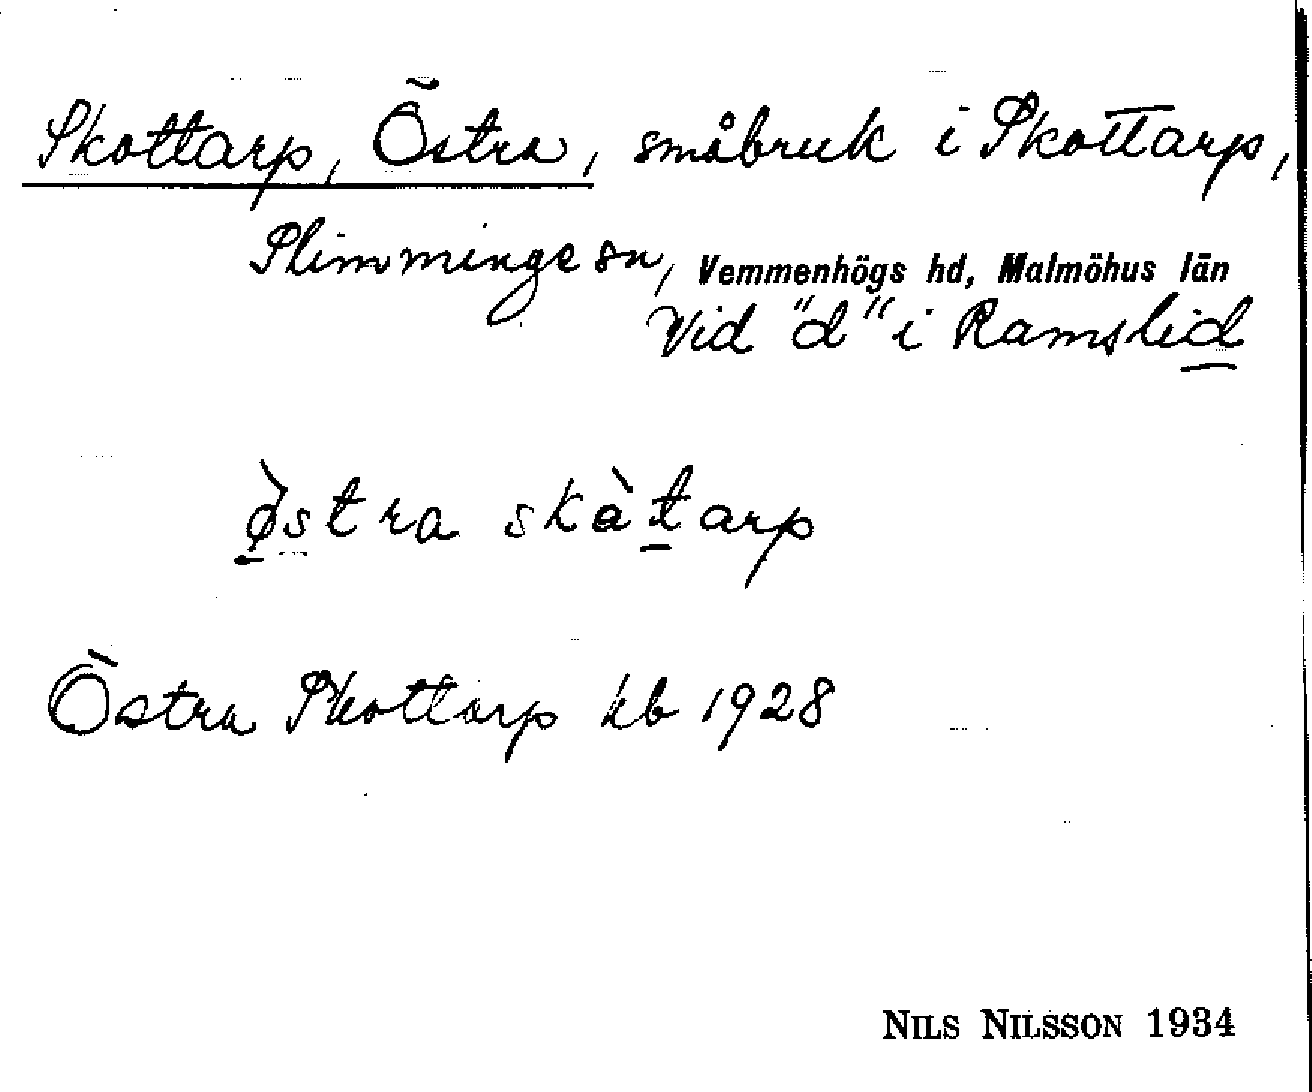 Skottarp, Östra, småbruk i Skottarp,
Slimminge sn, Vemmenhögs hd, Malmöhus län
Vid "d" i Ramslid
ø̀stra skàtarp
Östra Skottarp kb 1928
NILS NILSSON 1934